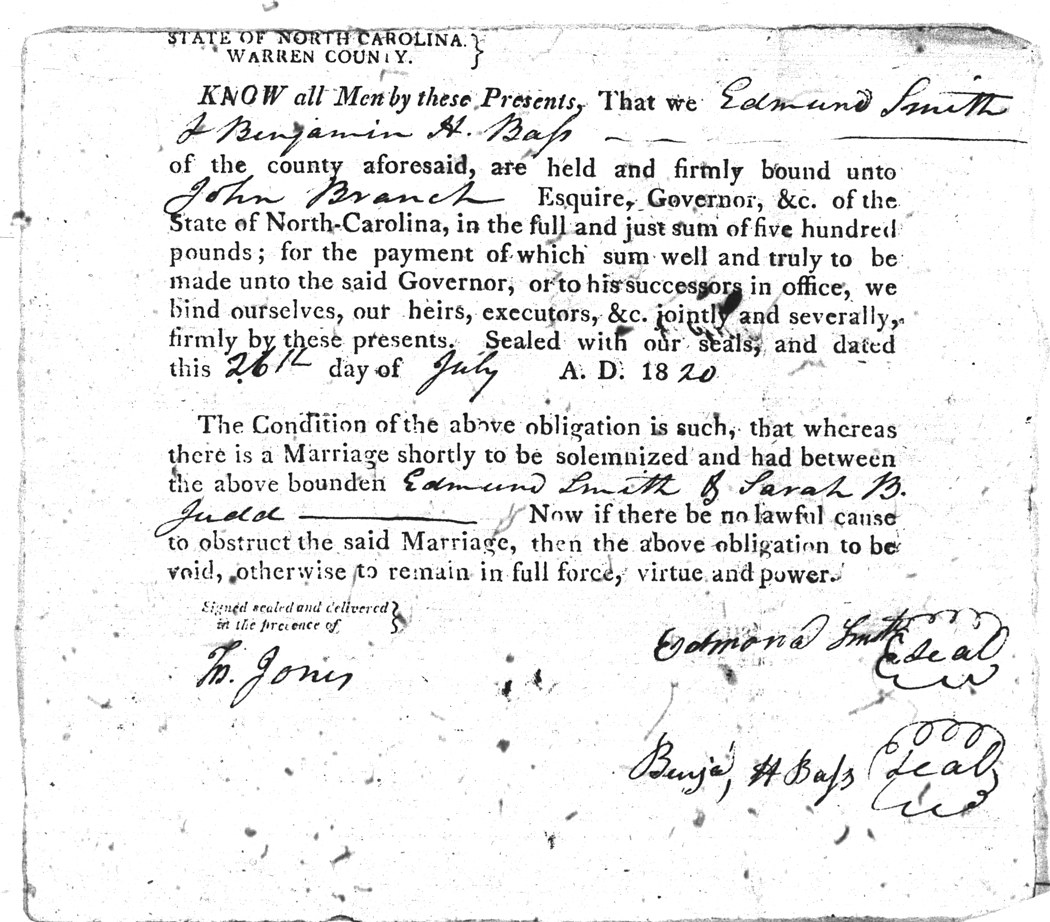 STATE OF NORTH CAROLINA.
WARREN COUNTY.
KNOW all Men by these Presents, That we Edmund Smith
& Benjamin H. Bass
of the county aforesaid, are held and firmly bound unto
John Branch Esquire, Governor, &c. of the
State of North-Carolina, in the full and just sum of five hundred
pounds; for the payment of which sum well and truly to be
made unto the said Governor, or to his successors in office, we
bind ourselves, our heirs, executors, &c. jointly and severally,
firmly by these presents. Sealed with our seals, and dated
this 26th day of July A. D. 1820
The Condition of the above obligation is such, that whereas
there is a Marriage shortly to be solemnized and had between
the above bounden Edmund Smith & Sarah B.
Judd Now if there be no lawful cause
to obstruct the said Marriage, then the above obligation to be
void, otherwise to remain in full force, virtue and power.
Signed sealed and delivered
in the presence of
Edmond Smith Seal
Jones
Benja, H Bass Seal